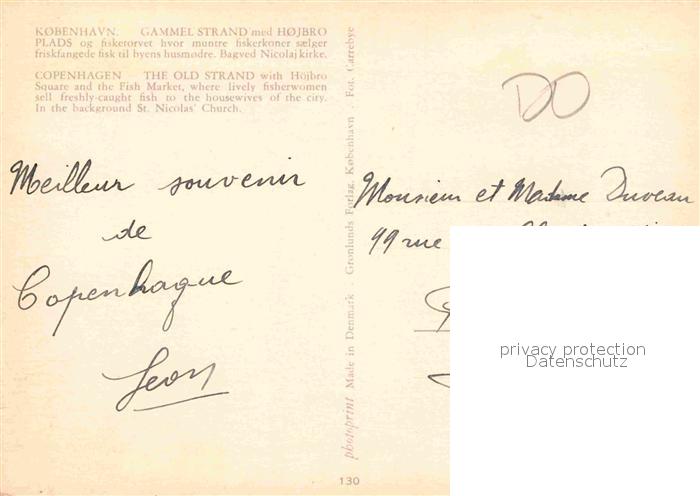 KØBENHAVN. GAMMEL STRAND med HØJBRO
PLADS og fisketorvet hvor muntre fiskerkoner sælger
friskfangede fisk til byens husmødre. Bagved Nicolaj kirke.
COPENHAGEN THE OLD STRAND with Höjbro
Square and the Fish Market, where lively fisherwomen
sell freshly-caught fish to the housewives of the city.
In the background St. Nicolas' Church.
Meilleur souvenir
de
Copenhague
Leon
photoprint Made in Denmark . Grønlunds Forlag, København Fot. Carrebye
130
DO
Monsieur et Madame Duveau
99 rue
privacy protection
Datenschutz